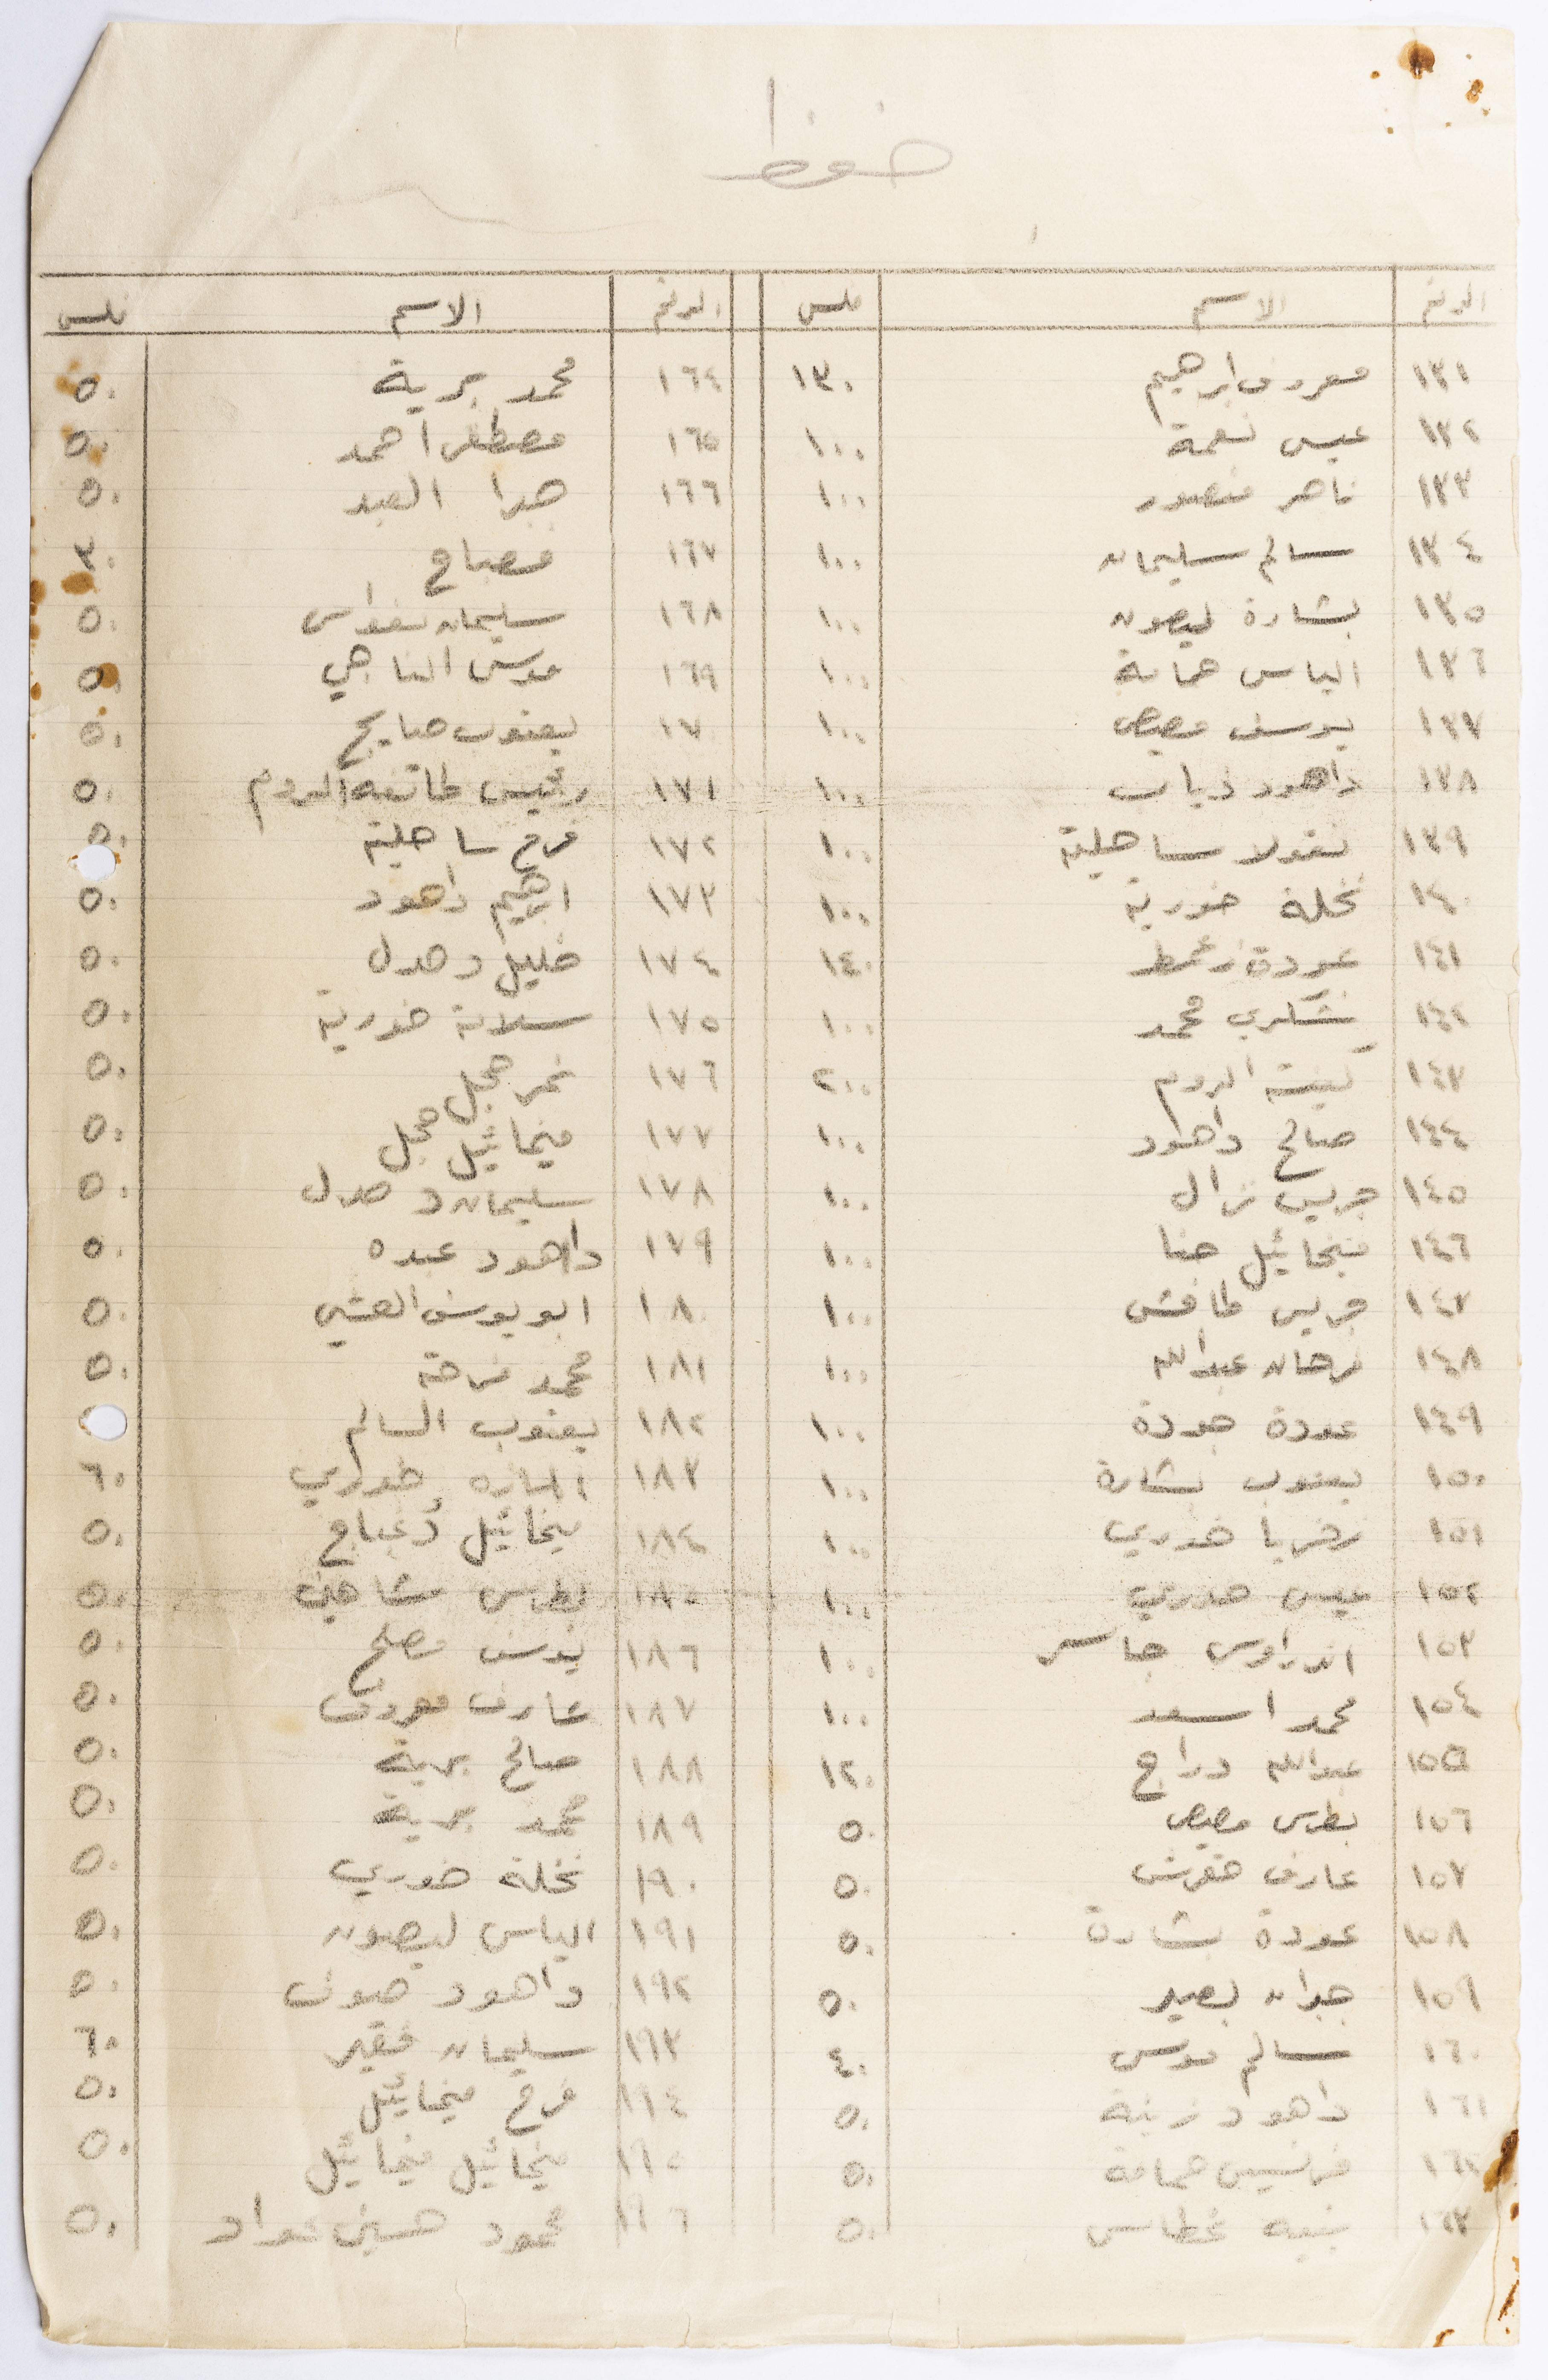 حفظ
الرقم الاسم ملس الرقم الاسم ملس
١٣١ معروف ابراهيم ١٣٠ ١٦٤ محمد برية ٥٠
١٣٢ عيسى نعمة ١٠٠ ١٦٥ مصطفى احمد ٥٠
١٣٣ ناصر منصور ١٠٠ ١٦٦ جبرا العبد ٥٠
١٣٤ سالم سليمان ١٠٠ ١٦٧ مصباح ٣٠
١٣٥ بشارة ليصون ١٠٠ ١٦٨ سليمان نقواس ٥٠
١٣٦ الياس حمامة ١٠٠ ١٦٩ موسى الناجي ٥٠
١٣٧ يوسف مصيص ١٠٠ ١٧٠ يعقوب صايج ٥٠
١٣٨ داهود ذياب ١٠٠ ١٧١ رئيس طائفة الروم ٥٠
١٣٩ نقولا ساحلية ١٠٠ ١٧٢ فرح ساحلية ٥٠
١٤٠ نخلة خورية ١٠٠ ١٧٣ ابراهيم داهود ٥٠
١٤١ عودة زعمط ١٤٠ ١٧٤ خليل دحدل ٥٠
١٤٢ شكري محمد ١٠٠ ١٧٥ سلامة خورية ٥٠
١٤٣ كنيسة الروم ٢٠٠ ١٧٦ نمر حجل ٥٠
١٤٤ صالح داهود ١٠٠ ١٧٧ ميخائيل حجل ٥٠
١٤٥ جريس نزال ١٠٠ ١٧٨ سليمان دحدل ٥٠
١٤٦ ميخائيل حنا ١٠٠ ١٧٩ داهود عبده ٥٠
١٤٧ جريس طافش ١٠٠ ١٨٠ ابو يوسف العشي ٥٠
١٤٨ فرحان عبدالله ١٠٠ ١٨١ محمد فرحة ٥٠
١٤٩ عودة جودة ١٠٠ ١٨٢ يعقوب السالم
١٥٠ يعقوب بشارة ١٠٠ ١٨٣ خوري ٦٠
١٥١ زخريا خوري ١٠٠ ١٨٤ ميخائيل دعباج ٥٠
١٥٢ عيسى خوري ١٠٠ ١٨٥ بطرس شاهين ٥٠
١٥٣ اندراوس جاسر ١٠٠ ١٨٦ يوسف مصلح ٥٠
١٥٤ محمد اسعد ١٠٠ ١٨٧ عارف معروف ٥٠
١٥٥ عبدالله دراج ١٢٠ ١٨٨ صالح برية ٥٠
١٥٦ بطرس مصيص ٥٠ ١٨٩ محمد برية ٥٠
١٥٧ عارف حقرش ٥٠ ١٩٠ نخلة خوري ٥٠
١٥٨ عودة بشارة ٥٠ ١٩١ الياس ليصون ٥٠
١٥٩ جبران بصير ٥٠ ١٩٢ داهود صوف ٥٠
١٦٠ سالم موسى ٤٠ ١٩٣ سليمان فقير ٦٠
١٦١ داهود زينة ٥٠ ١٩٤ فرح ميخائيل ٥٠
١٦٢ فرنسيس حمامة ٥٠ ١٩٥ ميخائيل ميخائيل ٥٠
١٦٣ غطاس ٥٠ ١٩٦ محمود حسين عواد ٥٠